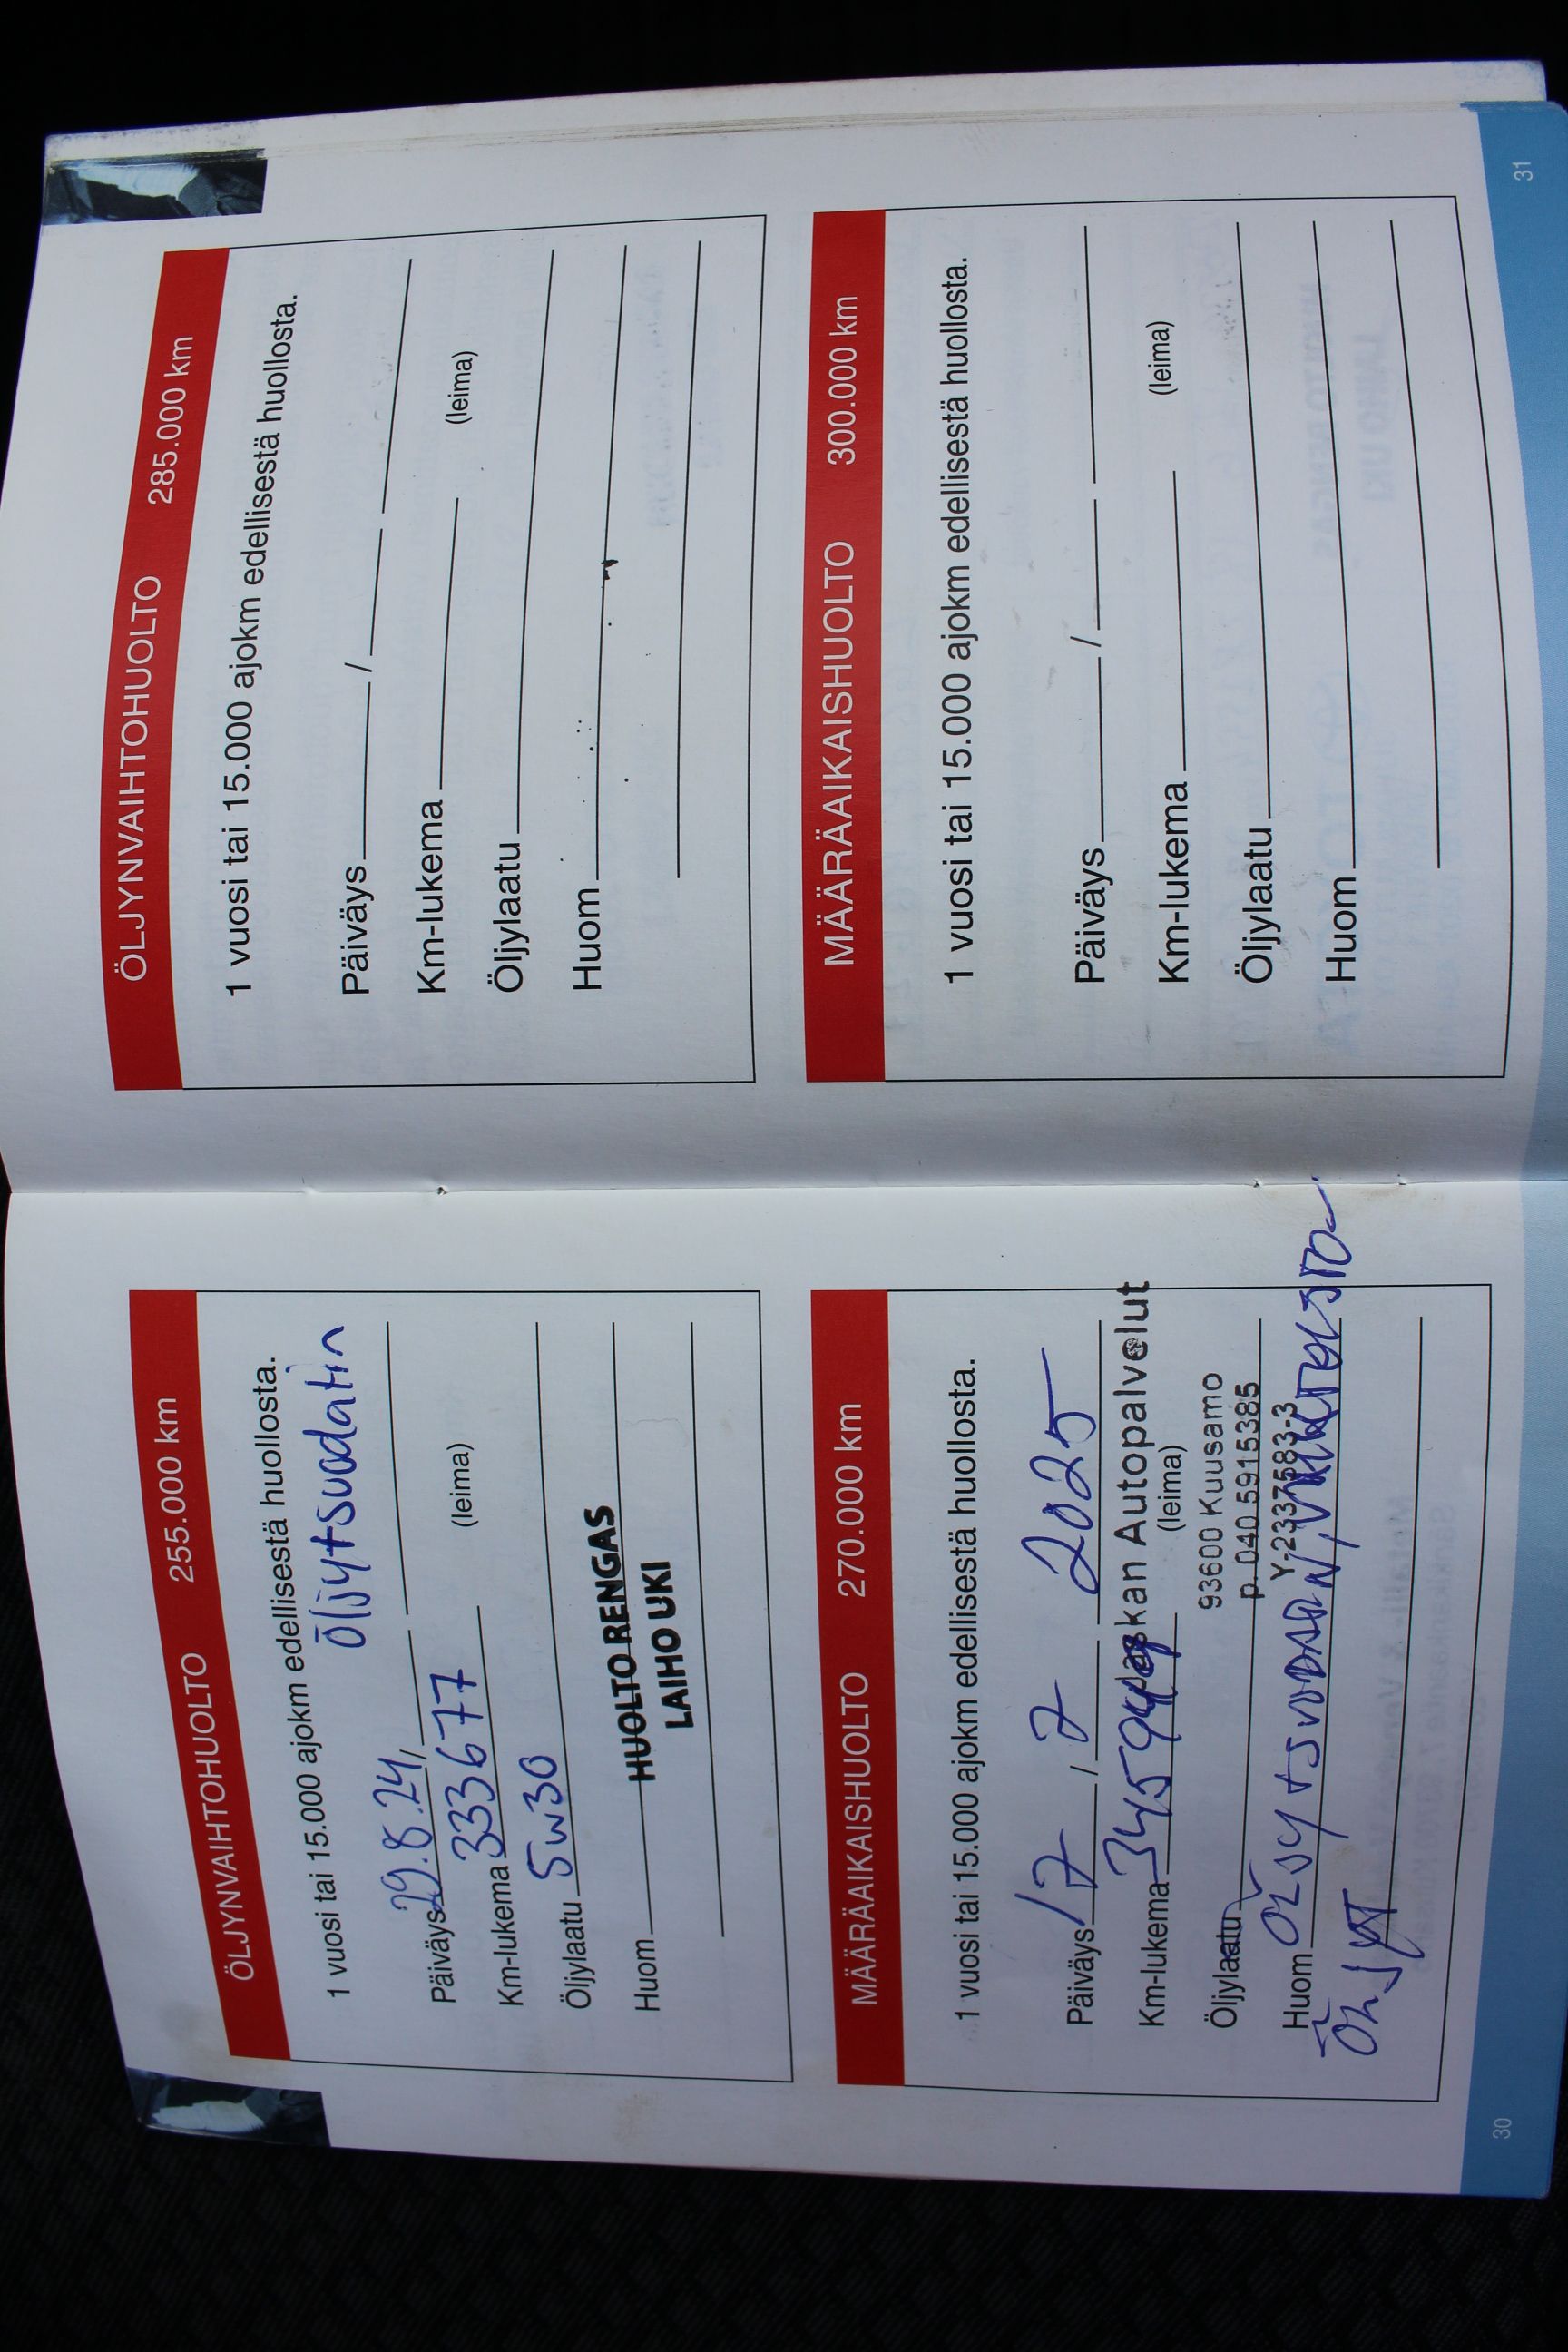 ÖLJYNVAIHTOHUOLTO 255.000 km
1 vuosi tai 15.000 ajokm edellisestä huollosta.
Öljyt+suodatin
Päiväys 29.8.24 /
Km-lukema 333677 (leima)
Öljylaatu 5W30
HUOLTO RENGAS
Huom
LAIHO UKI
MÄÄRÄAIKAISHUOLTO 270.000 km
1 vuosi tai 15.000 ajokm edellisestä huollosta.
Päiväys 17 / 7 2025
Autopalvelut
Km-lukema (leima)
93600 Kuusamo
Öljylaatu p. 040 5915385
Y-2337583-3
Huom ÖLJYT+SUODATIN,
ÖLJYT
30
ÖLJYNVAIHTOHUOLTO 285.000 km
1 vuosi tai 15.000 ajokm edellisestä huollosta.
Päiväys /
Km-lukema (leima)
Öljylaatu
Huom
MÄÄRÄAIKAISHUOLTO 300.000 km
1 vuosi tai 15.000 ajokm edellisestä huollosta.
Päiväys /
Km-lukema (leima)
Öljylaatu
Huom
31